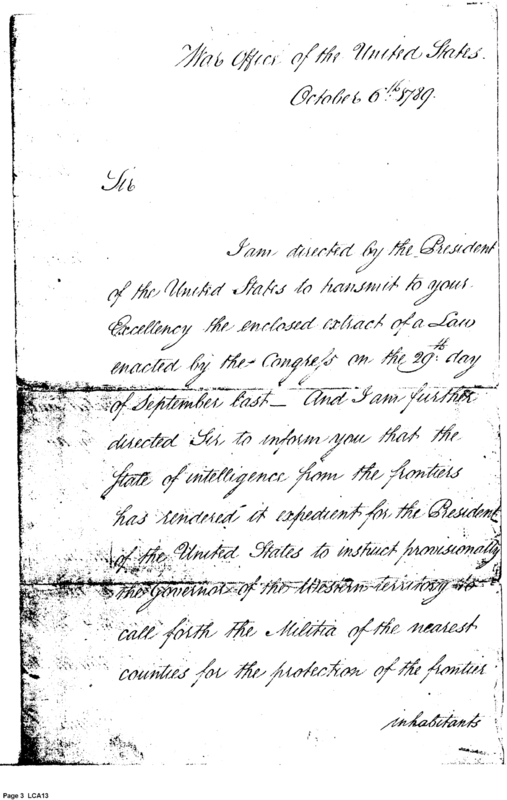 War Office of the United States.
October 6th 1789.
Sir
I am directed by the President
of the United States to transmit to your
Excellency the enclosed extract of a Law
enacted by the Congreſs on the 29th day
of September last_ And I am further
directed Sir to inform you that the
State of intelligence from the frontiers
has rendered it expedient for the President
of the United States to instruct provisionally
the Governor of the Western territory to
call forth the Militia of the nearest
counties for the protection of the frontier
inhabitants
Page 3 LCA13